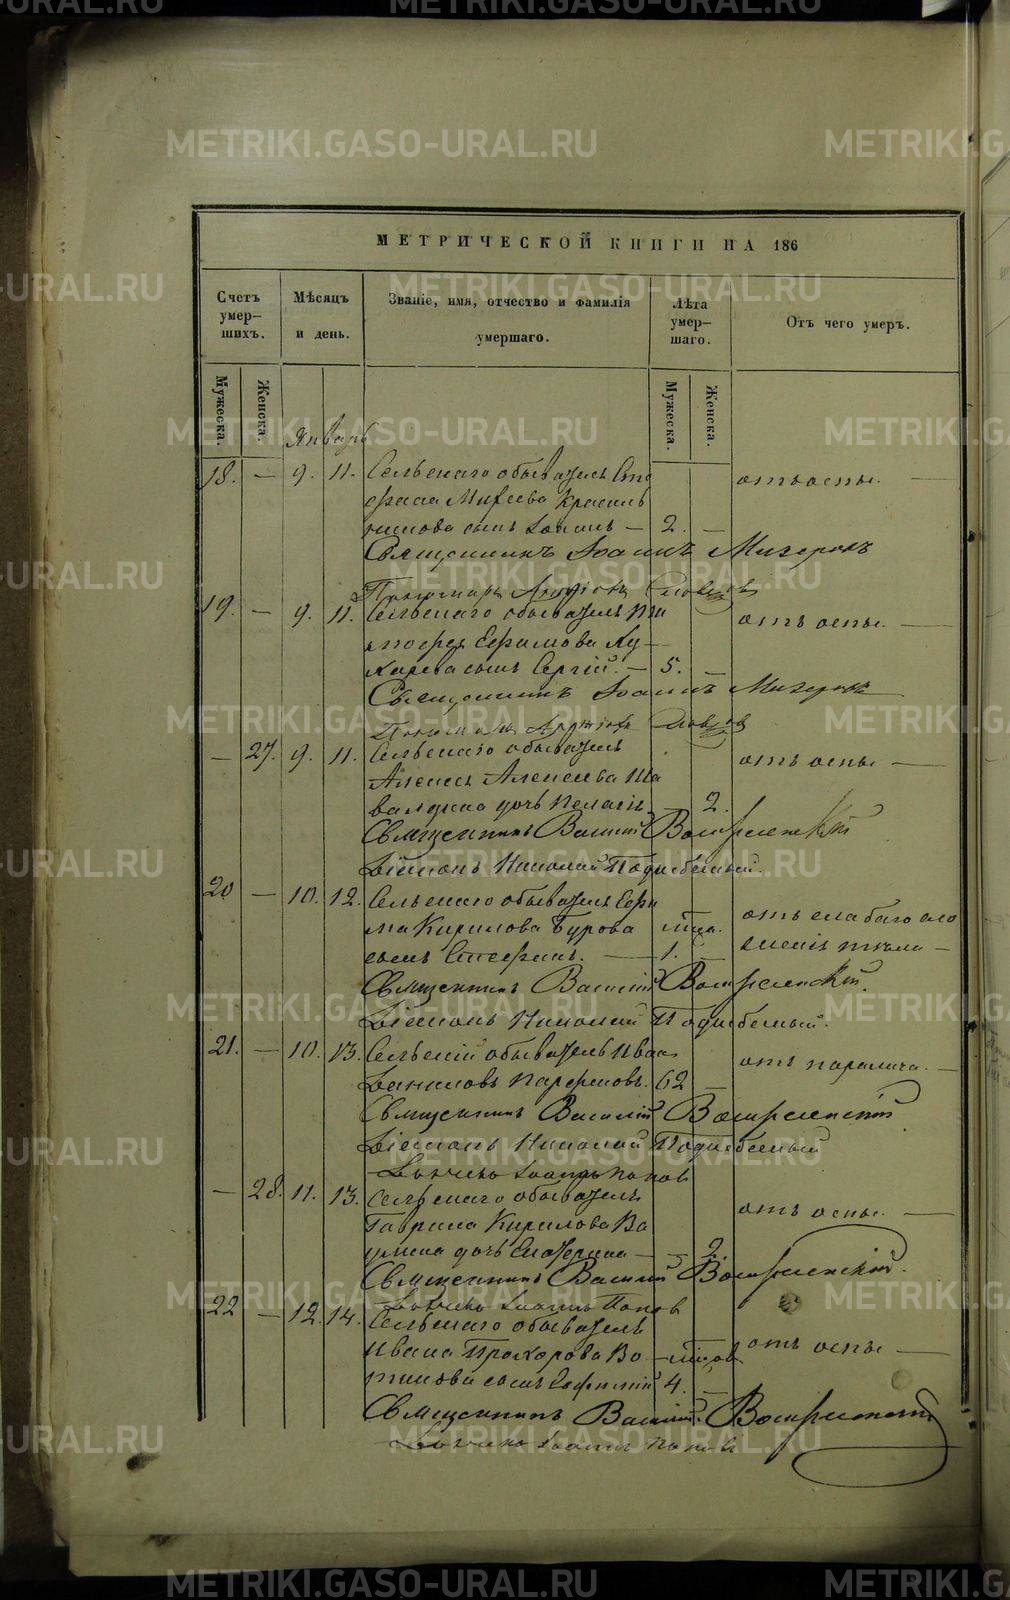 МЕТРИЧЕСКОЙ КНИГИ НА 186
Счетъ умерших. Мѣсяцъ и день. Званіе, имя, отчество и фамилія умершаго. Лѣта умершаго. Отъ чего умеръ.
Мужеска. Женска. Мужеска. Женска.
Январь
18. — 9. 11. Сельскаго обывателя Сте
фана Михеева Красиль
никова сынъ Іоаннъ — 2. — отъ оспы.
Священникъ Іоаннъ
Пономарь Словцовъ
19. — 9. 11. Сельскаго обывателя
Ефимова Ку
карева сынъ Сергій. — 5. — отъ оспы.
Священникъ Іоаннъ
Пономарь Словцовъ
— 27. 9. 11. Сельскаго обывателя
Алексея Алексеева Ша
валдина дочь Пелагія. — 2. отъ оспы.
Священникъ Василій Воскресенскій
Діаконъ Николай Поднебесный.
20 — 10. 12. Сельскаго обывателя Ефи
ма Кирилова Бурова мца. отъ слабаго сло
сынъ Стефанъ. — 1. — женія тѣла —
Священникъ Василій Воскресенскій.
Діаконъ Николай Поднебесный.
21. — 10. 13. Сельскій обыватель Иванъ
Даниловъ Парфеновъ. 62 — отъ паралича. —
Священникъ Василій Воскресенскій
Діаконъ Николай Поднебесный
Дьячекъ Іоаннъ Поповъ
— 28. 11. 13. Сельскаго обывателя
Гаврила Кирилова Ва
улина дочь Екатерина — — 2. отъ оспы. —
Священникъ Василій Воскресенскій.
Дьячекъ Іоаннъ Поповъ
22 — 12. 14. Сельскаго обывателя
Ивана Прохорова Во
тинова сынъ Евфимій 4. — отъ оспы —
Священникъ Василій Воскресенскій
Дьячекъ Іоаннъ Поповъ
METRIKI.GASO-URAL.RU